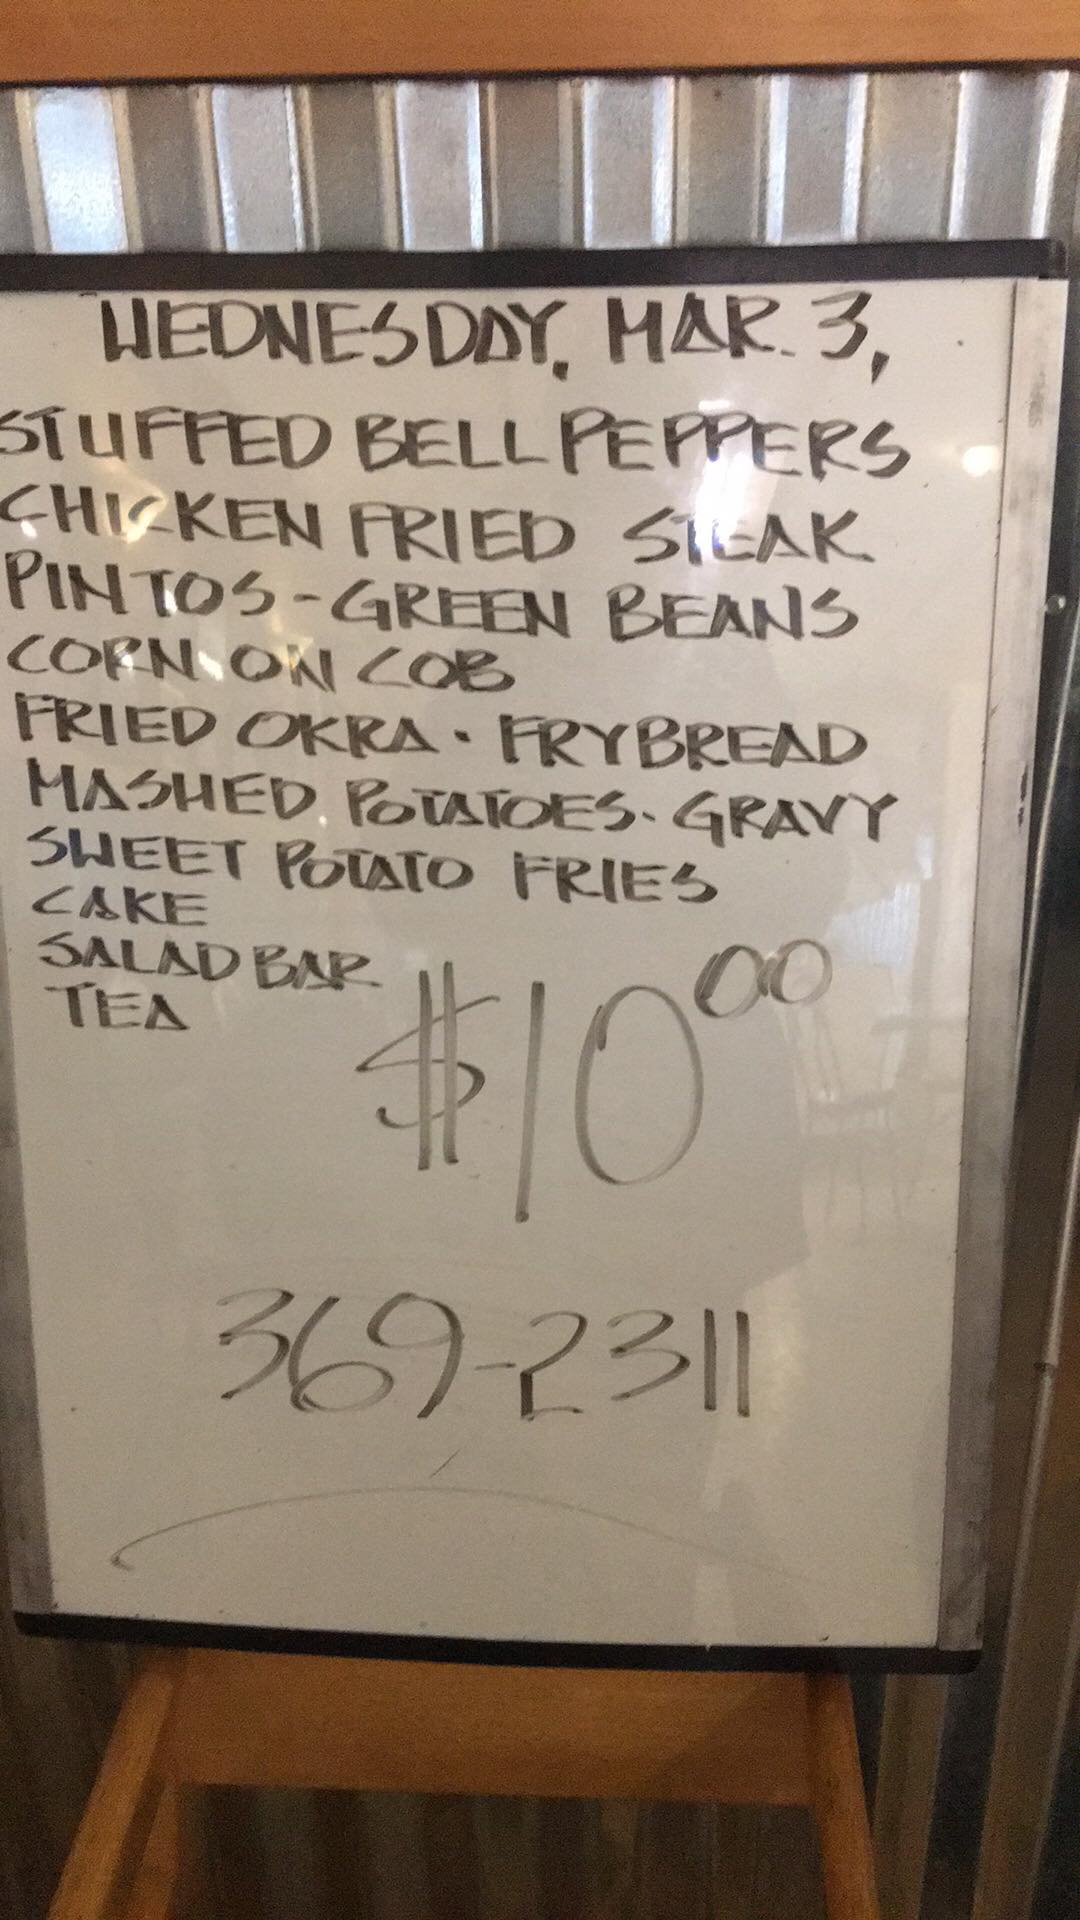 WEDNESDAY, MAR. 3,
STUFFED BELL PEPPERS
CHICKEN FRIED STEAK
PINTOS - GREEN BEANS
CORN ON COB
FRIED OKRA · FRYBREAD
MASHED POTATOES · GRAVY
SWEET POTATO FRIES
CAKE
SALAD BAR
TEA
$10 00
369-2311